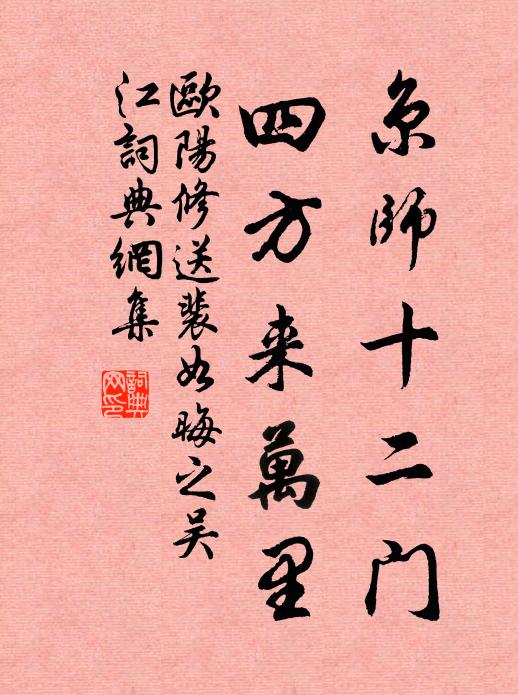 京師十二門
四方来萬里
歐陽修送裴如晦之吴
江詞典網集
詞典
网印